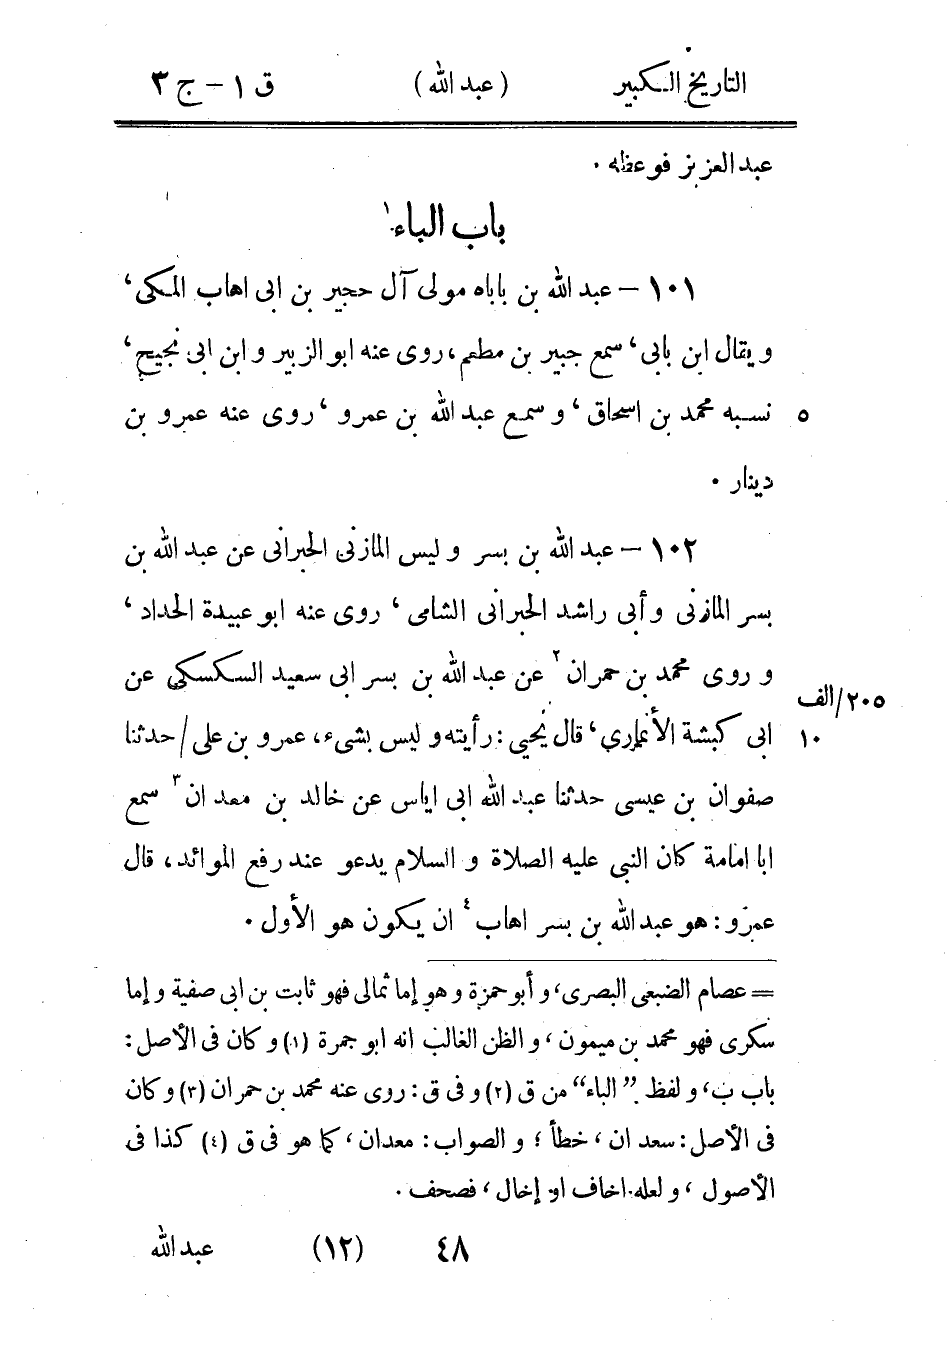 التاريخ الكبير (عبد الله) ق ١ - ج ٣
عبد العزيز فوعظه ٠
باب الباء ١
١٠١ – عبد الله بن باباه مولى آل حجير بن ابى اهاب المكى ،
و يقال ابن بابى ، سمع جبير بن مطعم ، روى عنه ابو الزبير و ابن ابى نجيح ،
٥ نسبه محمد بن اسحاق ، و سمع عبد الله بن عمرو ، روى عنه عمرو بن
دينار ٠
١٠٢ – عبد الله بن بسر و ليس المازنى الحبرانى عن عبد الله بن
بسر المازنى و أبى راشد الحبرانى الشامى ، روى عنه ابو عبيدة الحداد ،
و روى محمد بن حمران ٢ عن عبد الله بن بسر ابى سعيد السكسكي عن
٢٠٥/الف
١٠ ابى كبشة الأنمارى ، قال يحيى : رأيته و ليس بشىء ، عمرو بن على / حدثنا
صفوان بن عيسى حدثنا عبد الله ابى اياس عن خالد بن معدان ٣ سمع
ابا امامة كان النبى عليه الصلاة و السلام يدعو عند رفع الموائد ، قال
عمرو : هو عبد الله بن بسر اهاب ٤ ان يكون هو الأول ٠
= عصام الضبعى البصرى ، و أبو حمزة و هو إما ثمالى فهو ثابت بن ابى صفية و إما
سكرى فهو محمد بن ميمون ، و الظن الغالب انه ابو جمرة (١) و كان فى الأصل :
باب ب ، و لفظ ” الباء “ من ق (٢) و فى ق : روى عنه محمد بن حمران (٣) و كان
فى الأصل : سعد ان ، خطأ ؛ و الصواب : معدان ، كما هو فى ق (٤) كذا فى
الأصول ، و لعله اخاف او إخال ، فصحف ٠
٤٨ (١٢) عبد الله